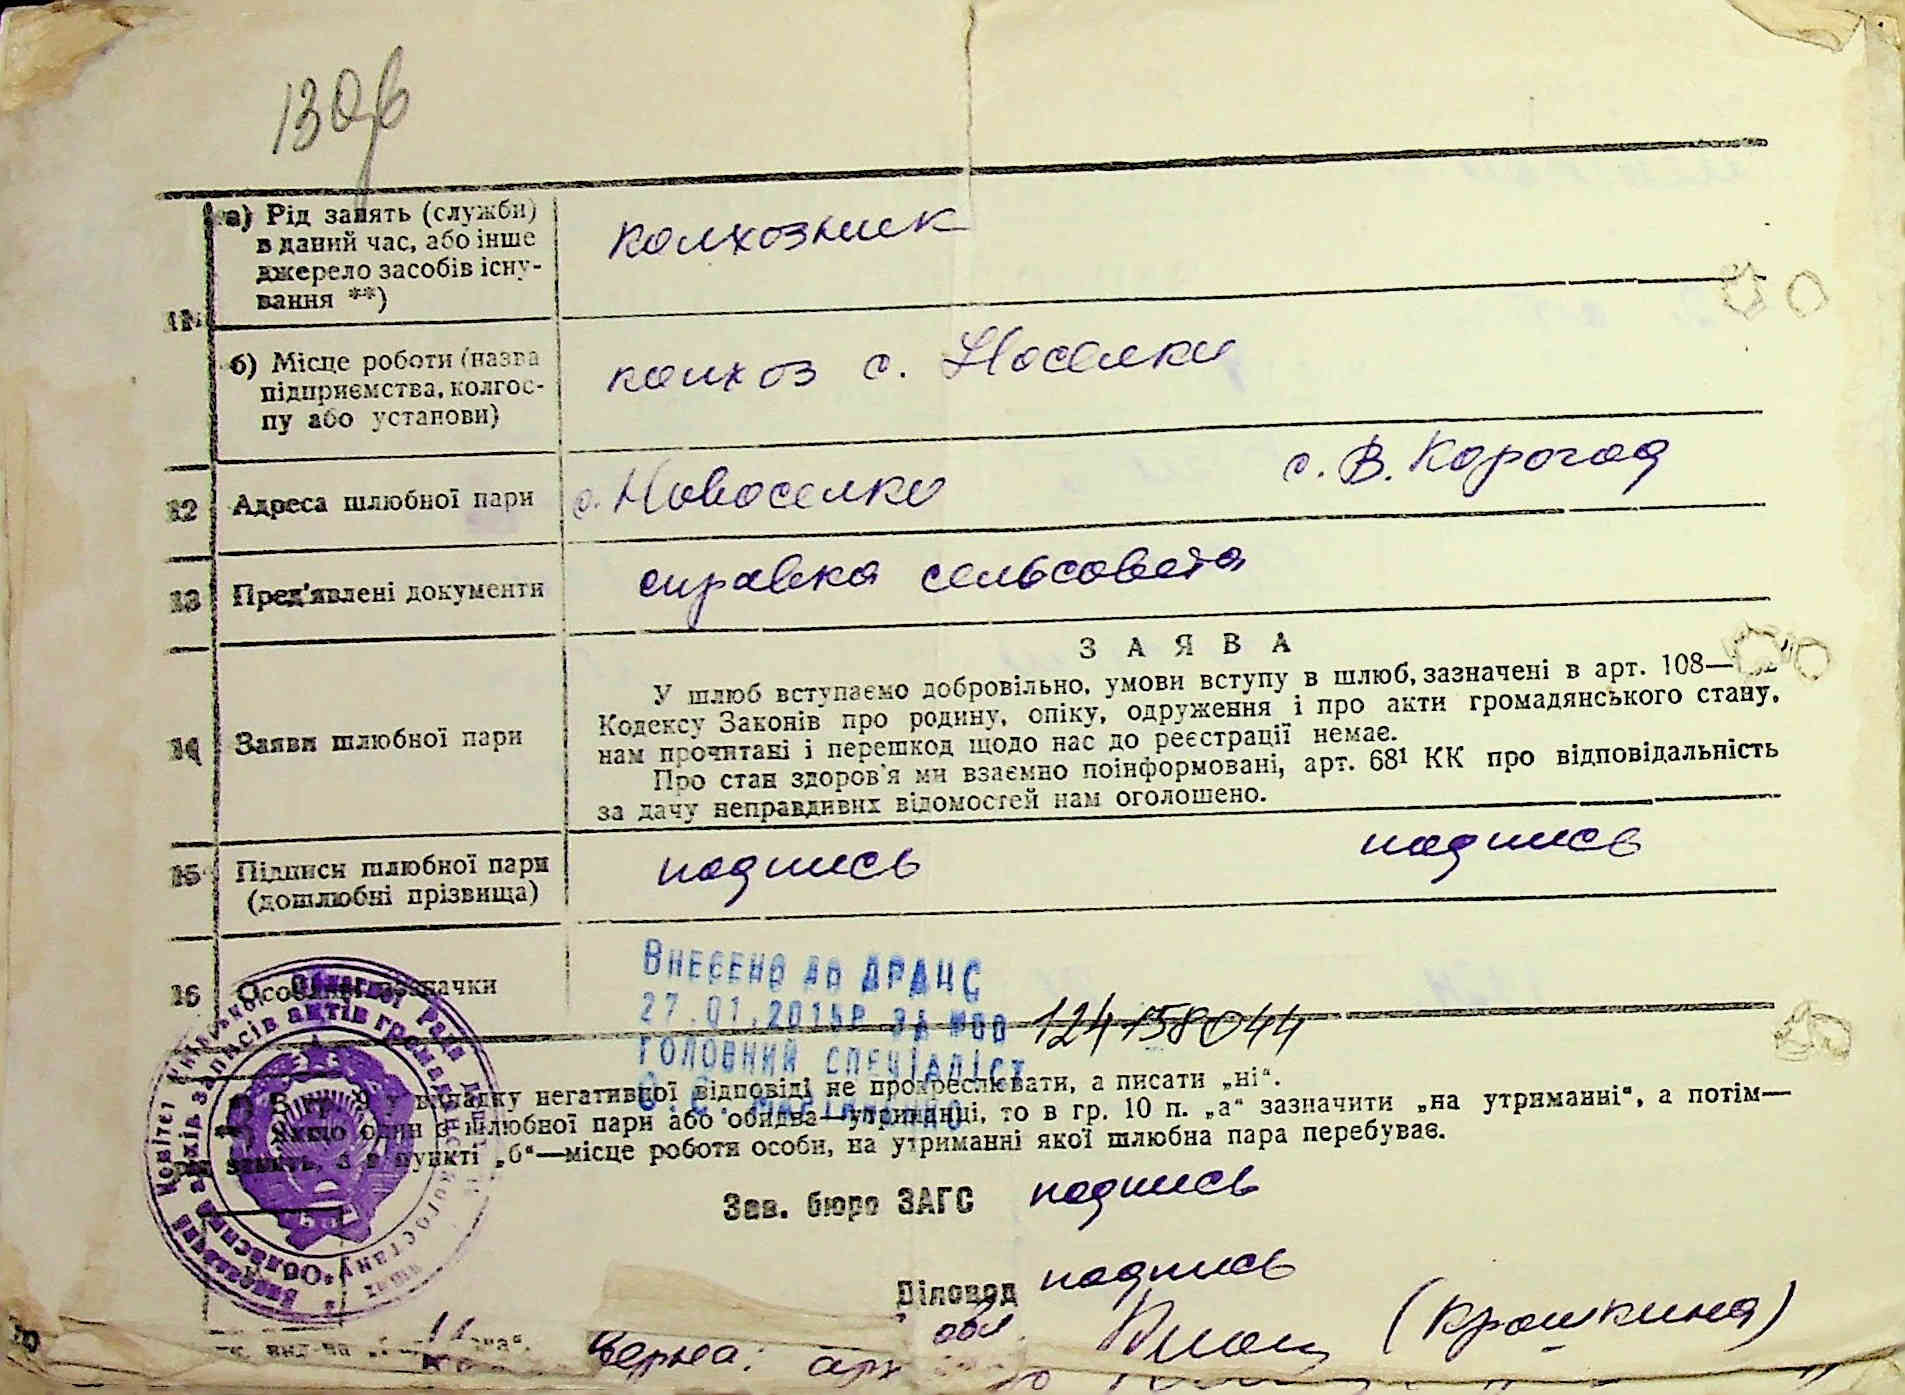 130б
11
а) Рід занять (служби)
в даний час, або інше
джерело засобів існу-
вання **)
колхозник
б) Місце роботи (назва
підприємства, колгос-
пу або установи)
колхоз с. Носелки
12 Адреса шлюбної пари с. Новоселки с. В. Корогод
13 Пред'явлені документи справка сельсовета
14 Заяви шлюбної пари
ЗАЯВА
У шлюб вступаємо добровільно, умови вступу в шлюб, зазначені в арт. 108—
Кодексу Законів про родину, опіку, одруження і про акти громадянського стану,
нам прочитані і перешкод щодо нас до реєстрації немає.
Про стан здоров'я ми взаємно поінформовані, арт. 68¹ КК про відповідальність
за дачу неправдивих відомостей нам оголошено.
15 Підписи шлюбної пари
(дошлюбні прізвища)
подпись подпись
16 Особливі
ВНЕСЕНО ДО ДРАЦС
27.01.2015Р ЗА №00 124158044
ГОЛОВНИЙ СПЕЦІАЛІСТ
у випадку негативної відповіді не прокреслювати, а писати „ні“.
Якщо один з шлюбної пари або обидва—утриманці, то в гр. 10 п. „а“ зазначити „на утриманні“, а потім—
рід занять, а в пункті „б“—місце роботи особи, на утриманні якої шлюбна пара перебуває.
Зав. бюро ЗАГС подпись
Діловод подпись
Верна: (Крошкина)